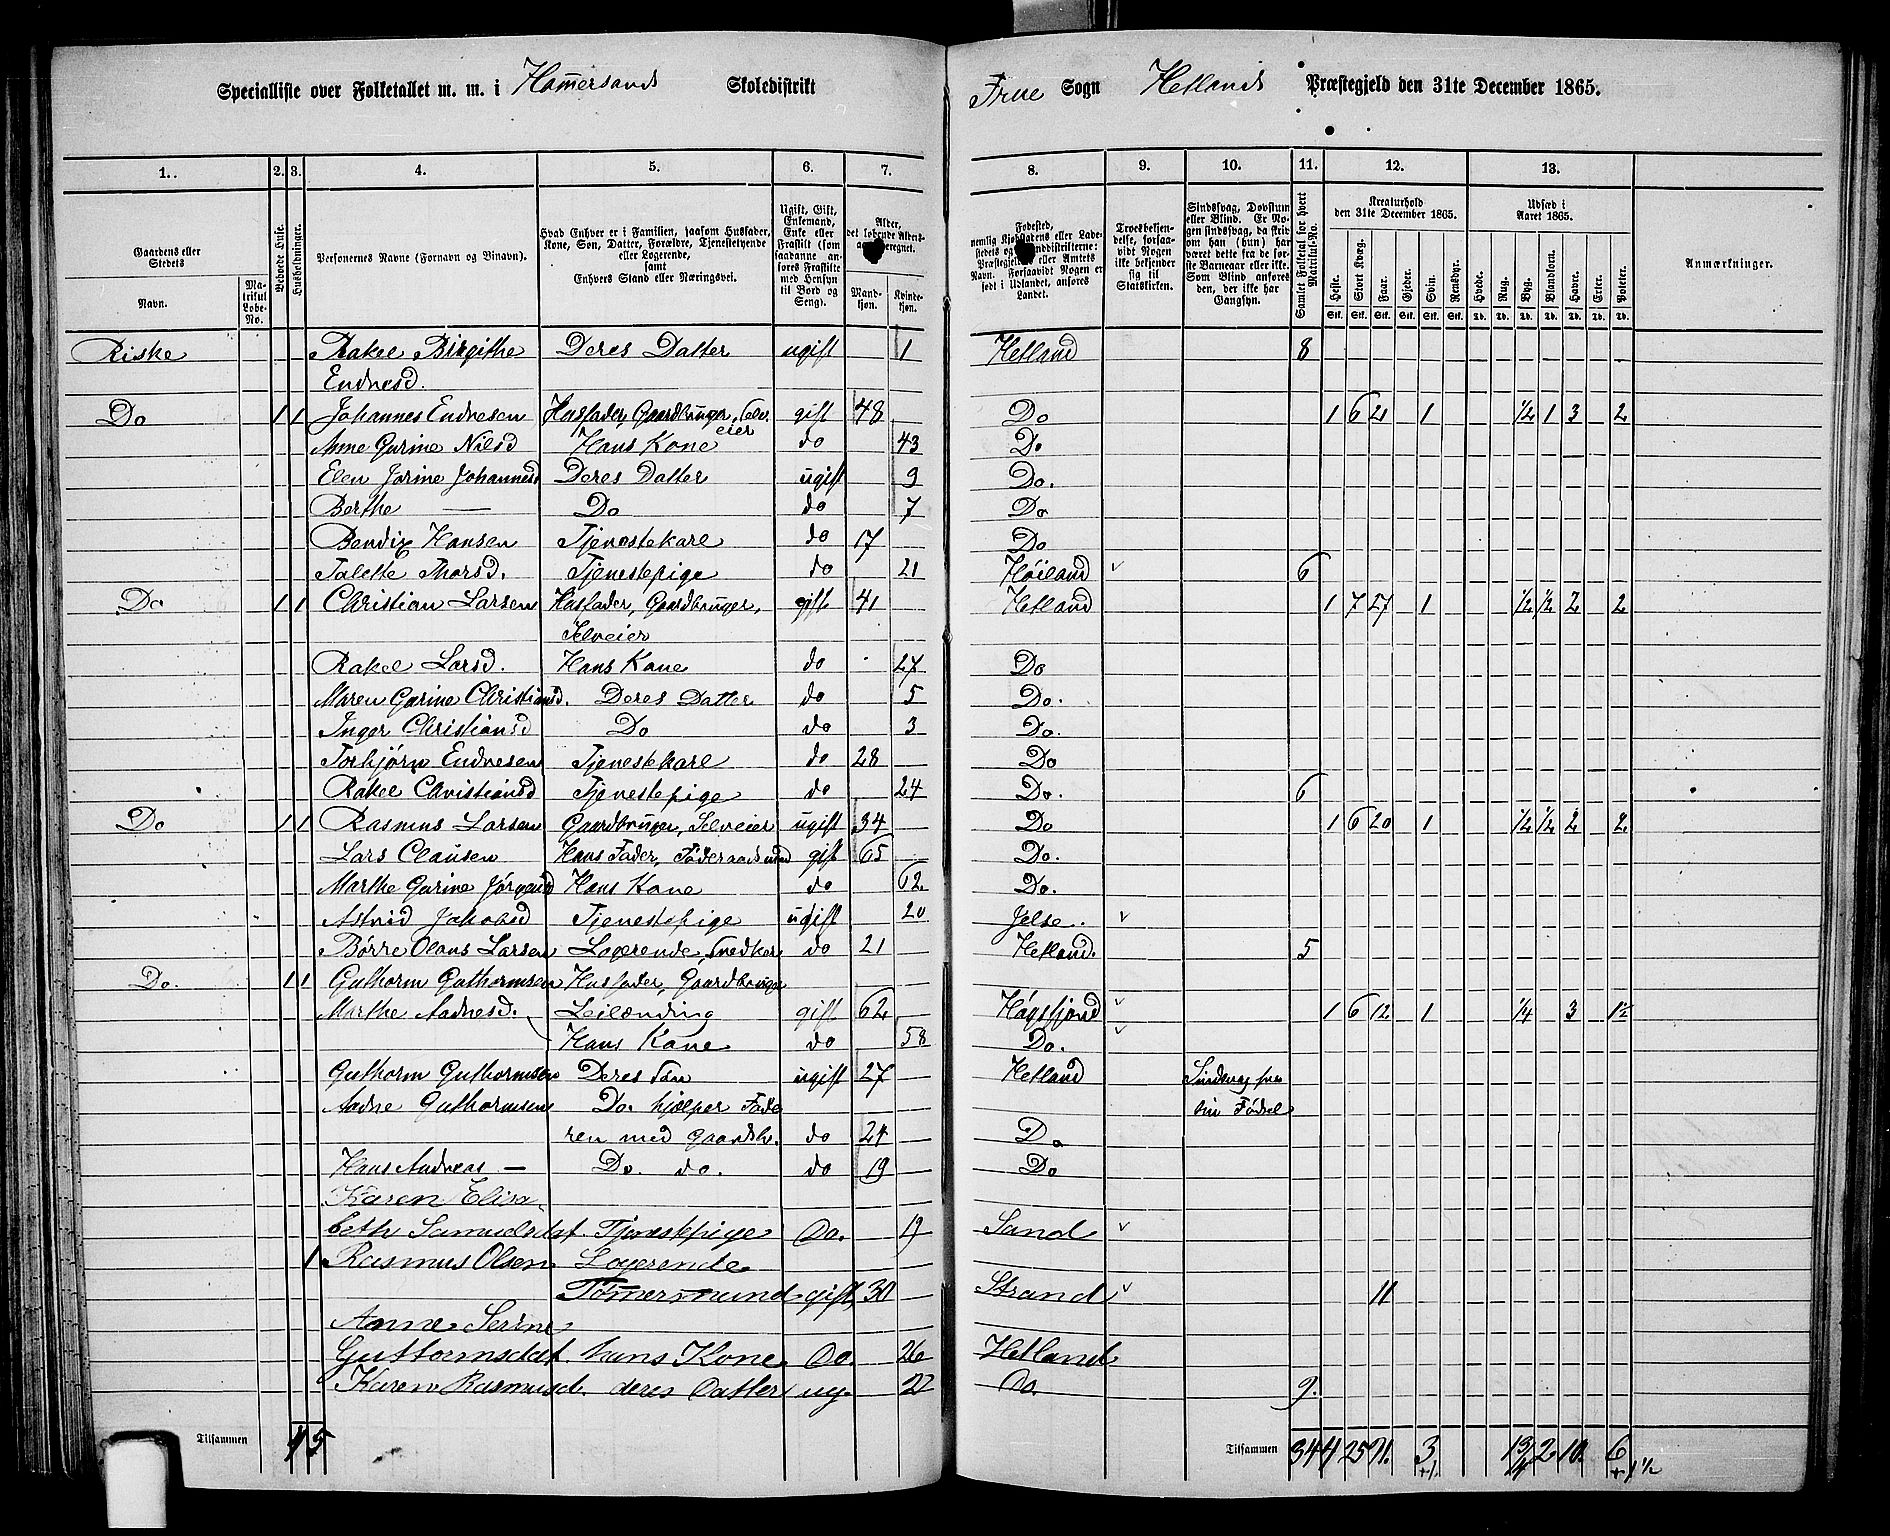 Specialliste over Folketallet m. m. i Hammersands Skoledistrikt Frue Sogn Hetlands Præstegjeld den 31te December 1865.
1. 2. 3. 4. 5. 6. 7. 8. 9. 10. 11. 12. 13.
Gaardens eller Stedets
Navn.
Matrikul Løbe-No.
Beboede Huse.
Husholdninger.
Personernes Navne (Fornavn og Binavn).
Hvad Enhver er i Familien, saasom Husfader, Kone, Søn, Datter, Forældre, Tjenestetyende eller Logerende, samt Enhvers Stand eller Næringsvei.
Ugift, Gift, Enkemand, Enke eller Fraskilt (som saadanne anføres Fraskilte med Hensyn til Bord og Seng).
Mandkjøn. Kvindekjøn.
Troesbekjendelse, forsaavidt Nogen ikke bekjender sig til Statskirken.
Samlet Folketal for hvert Matrikul-No.
Kreaturhold den 31te December 1865.
Heste. Stort Kvæg. Faar. Gjeder. Svin. Rensdyr.
Udsæd i Aaret 1865.
Hvede. Rug. Byg. Blandkorn. Havre. Erter. Poteter.
Anmærkninger.
Riske Rakel Birgithe Deres Datter ugift 1 Hetland 8
Endresd.
Do 1 1 Johannes Endresen Husfader, Gaardbruger, Selv- gift 48 Do 1 6 21 1 ½ 1 3 2
eier
Anne Gurine Nilsd Hans Kone do 43 Do
Elen Jorine Johannesd Deres Datter ugift 9 Do.
Berthe — Do do 7 Do
Bendix Hansen Tjenestekarl do 17 Do
Talette Thorsd. Tjenestepige do 21 Høiland v 6
Do 1 1 Christian Larsen Husfader, Gaardbruger, gift 41 Hetland 1 7 27 1 ½ ½ 2 2
Selveier
Rakel Larsd. Hans Kone do 27 Do
Maren Gurine Christiansd. Deres Datter do 5 Do.
Inger Christiansd Do do 3 Do.
Torbjørn Endresen Tjenestekarl do 28 Do
Rakel Christiansd Tjenestepige do 24 Do. 6
Do 1 1 Rasmus Larsen Gaardbruger, Selveier ugift 34 Do 1 6 20 1 ½ ½ 2 2
Lars Clausen Hans Fader, Føderaadsmd gift 65 Do.
Marthe Gurine Jørgensd Hans Kone do 62 Do.
Astrid Jakobsd Tjenestepige ugift 20 Jelse. v
Børre Olaus Larsen Logerende, Snedker do 21 Hetland. 5
Do. 1 1 Guthorm Guthormsen Husfader, Gaardbruger
Marthe Aadnesd. Leilænding gift 62 Høgsfjord v 1 6 12 1 ¼ 3 1½
Hans Kone do 58 Do. v
Guthorm Guthormsen Deres Søn ugift 27 Hetland Sindsvag fra
Aadne Guthormsen Do. hjælper Fade sin Fødsel
ren med Gaardsbr. do 24 Do
Hans Andreas — Do. do. do 19 Do
Karen Elisa-
beth Samuelsdat. Tjenestepige Do. 19 Sand v
1 Rasmus Olsen Logerende
Tømmermand gift 30 Strand v 11
Anne Serine
Guttormsdat. hans Kone Do. 26 Hetland
Karen Rasmusd. deres Datter ug. 2 Do. 9.
Tilsammen 4 5 Tilsammen 34 4 25 91. 3 1¾ 2 10. 6
+1 +1½